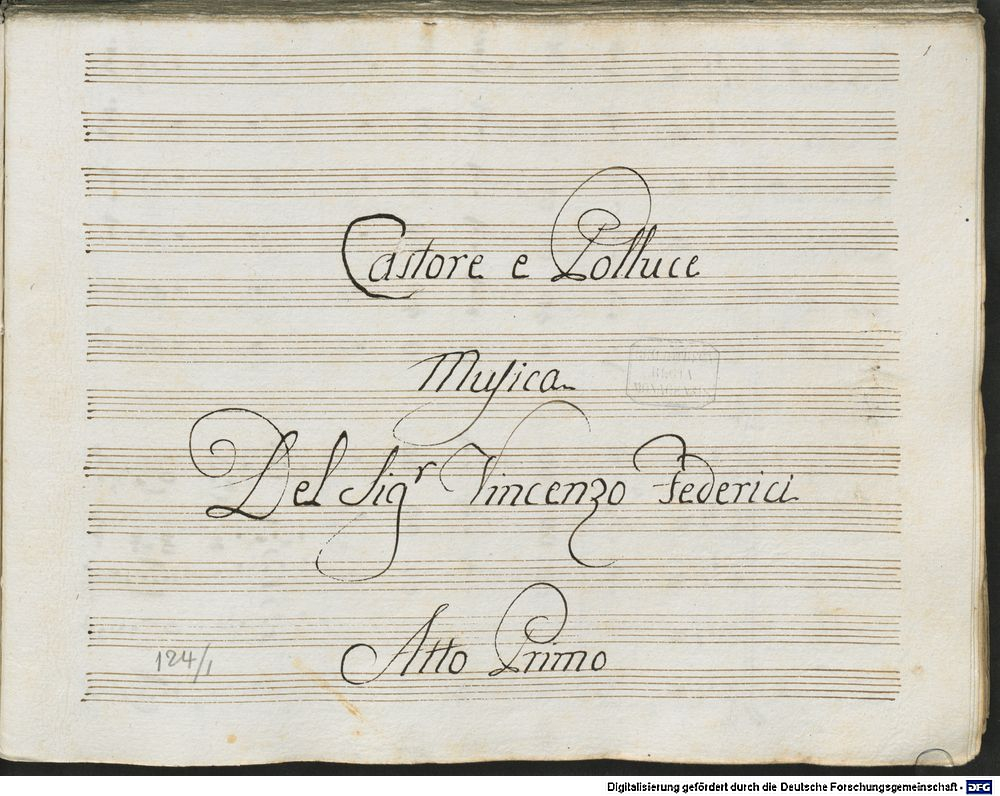 1
Castore e Polluce
Musica
Del Sigr Vincenzo Federici
Atto Primo
124/1
REGIA
MONACENSIS
Digitalisierung gefördert durch die Deutsche Forschungsgemeinschaft - DFG